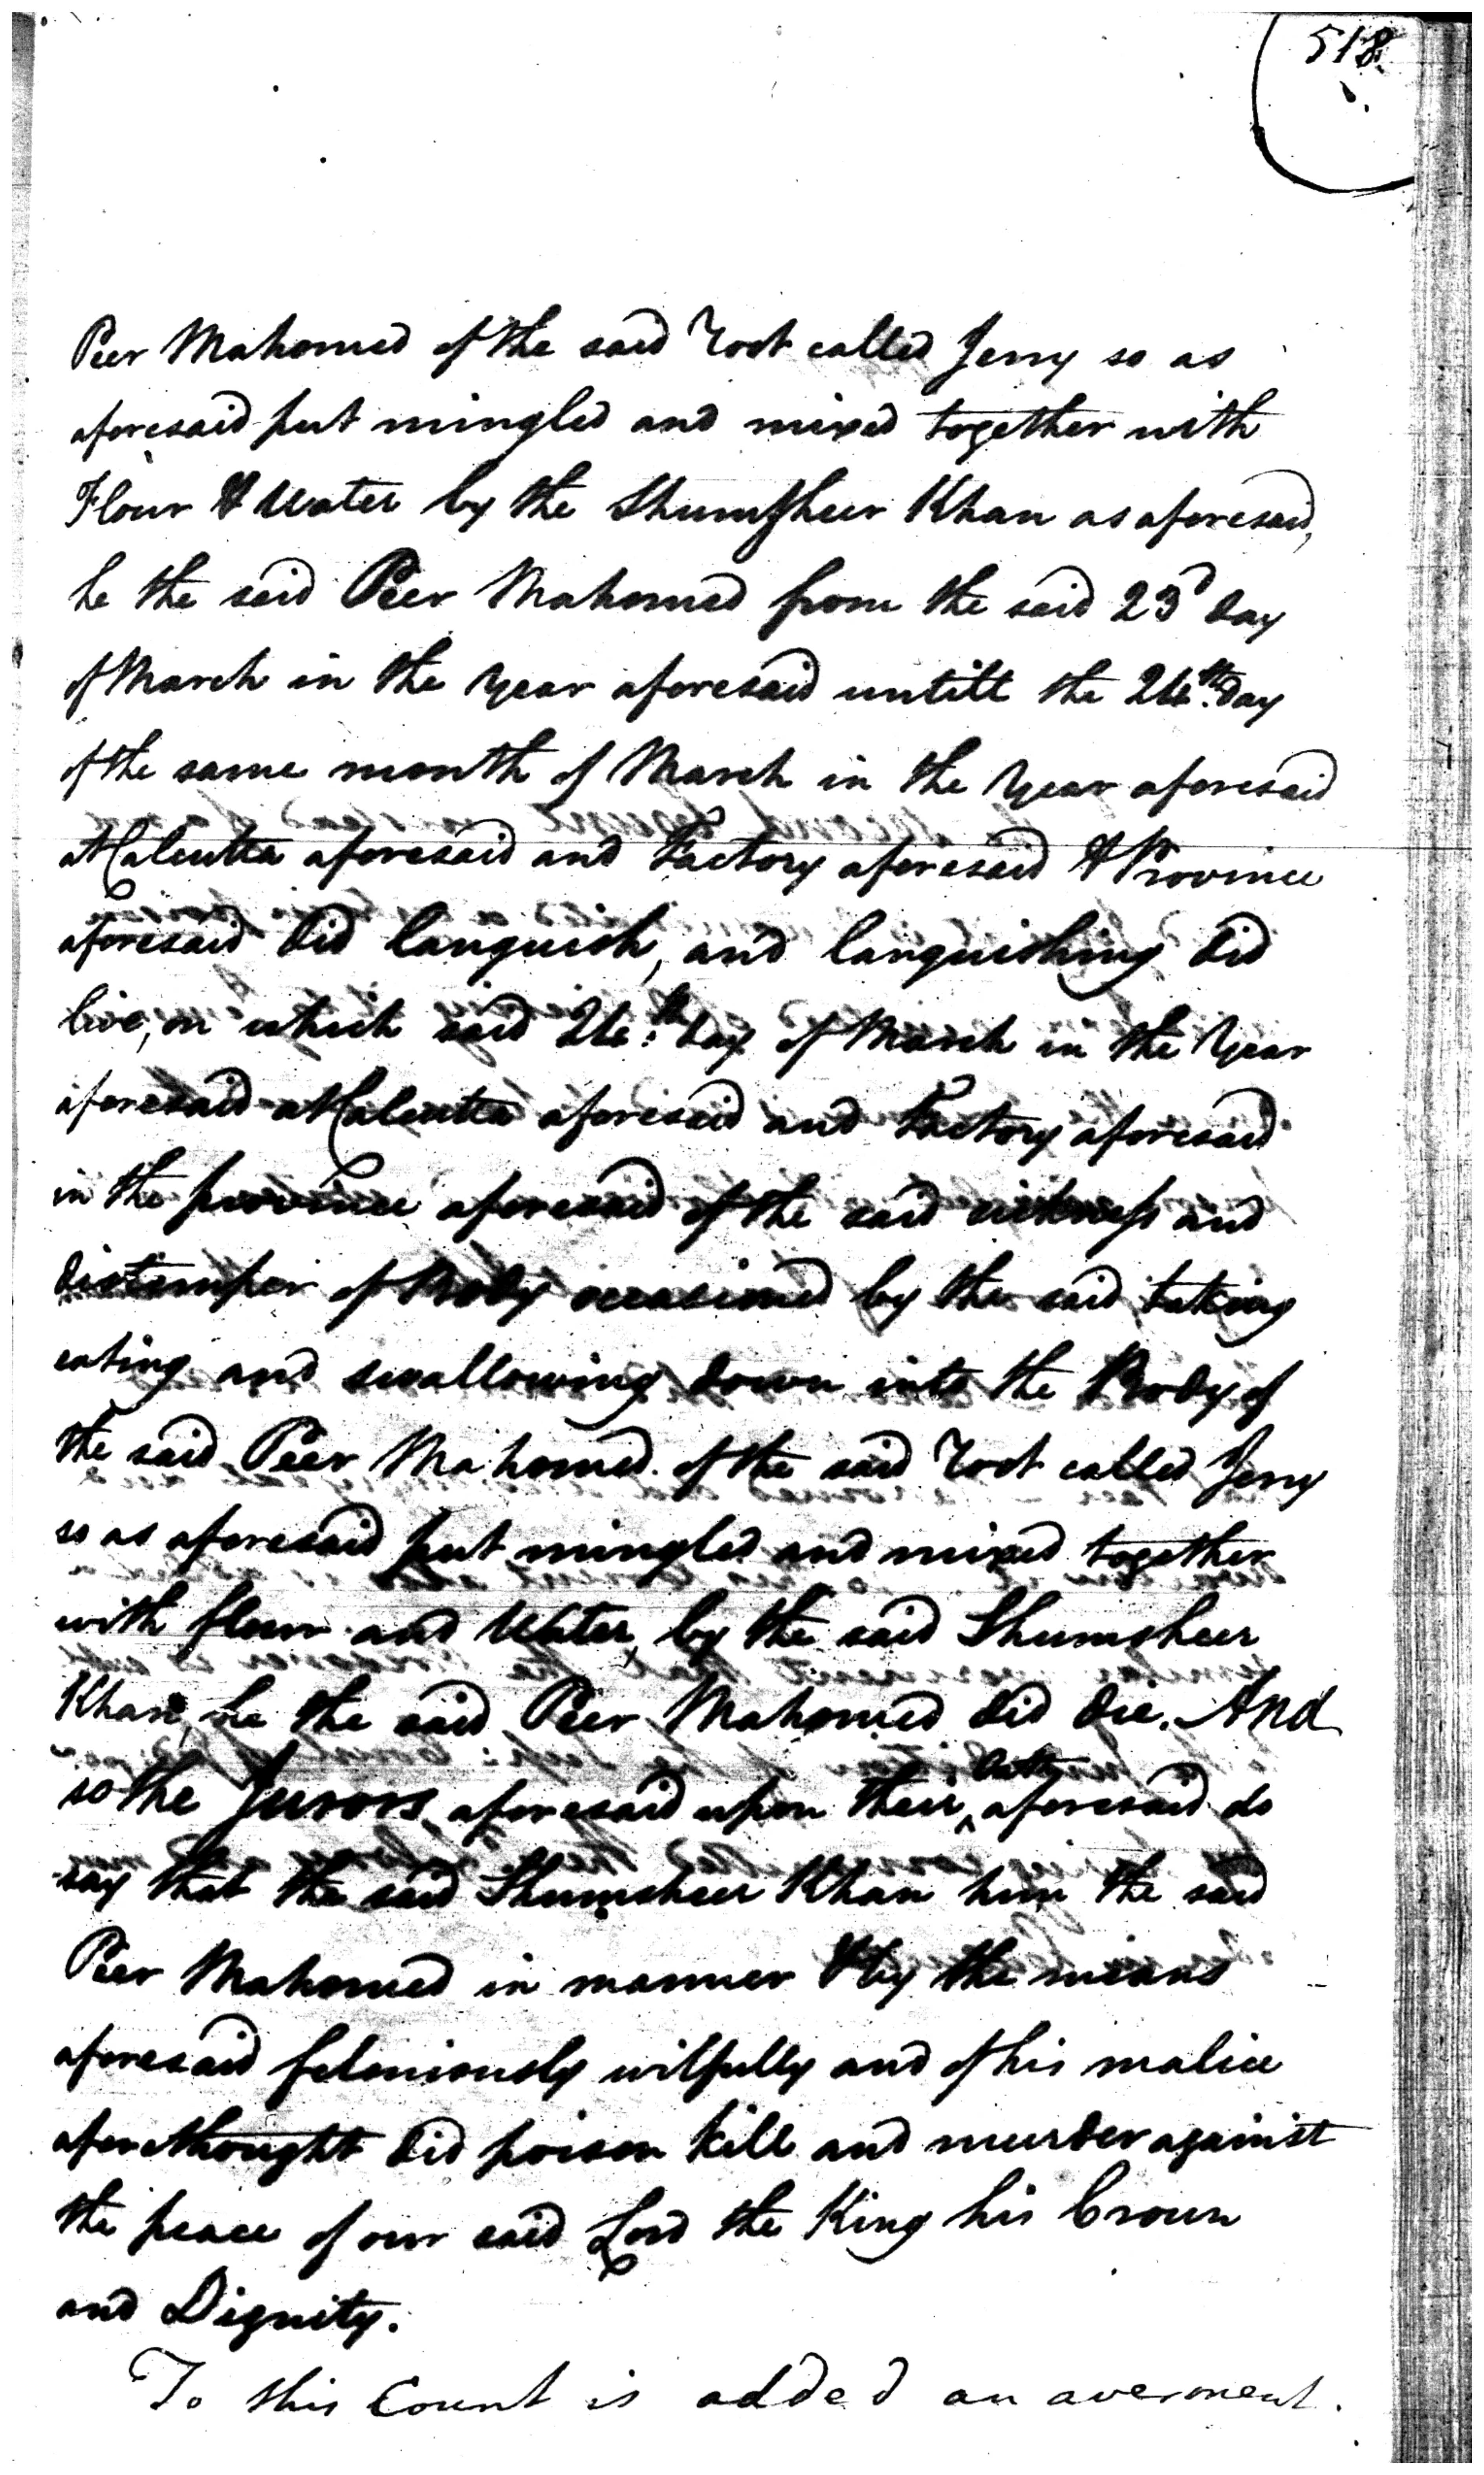 518
Peer Mahomed of the said Root called Jerry so as
aforesaid put mingled and mixed together with
Flour & Water by the Shumsheer Khan as aforesaid,
he the said Peer Mahomed from the said 23d day
of March in the Year aforesaid untill the 26th. day
of the same month of March in the Year aforesaid
at Calcutta aforesaid and Factory aforesaid & Province
aforesaid did languish, and languishing did
live, on which said 26th. day of March in the Year
aforesaid at Calcutta aforesaid and Factory aforesaid
in the province aforesaid of the said sickness and
distemper of Body occasioned by the said taking
eating and swallowing down into the Body of
the said Peer Mahomed of the said Root called Jerry
so as aforesaid put mingled and mixed together
with flour and Water, by the said Shumsheer
Khan, he the said Peer Mahomed did die. And
so the Jurors aforesaid upon their ^ Oath aforesaid do
say that the said Shumsheer Khan him the said
Peer Mahomed in manner & by the means
aforesaid feloniously wilfully and of his malice
aforethought did poison kill and murder against
the peace of our said Lord the King his Crown
and Dignity.
To this Count is added an averment.